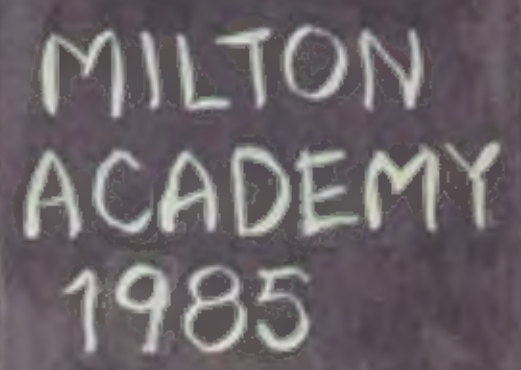 MILTON
ACADEMY
1985